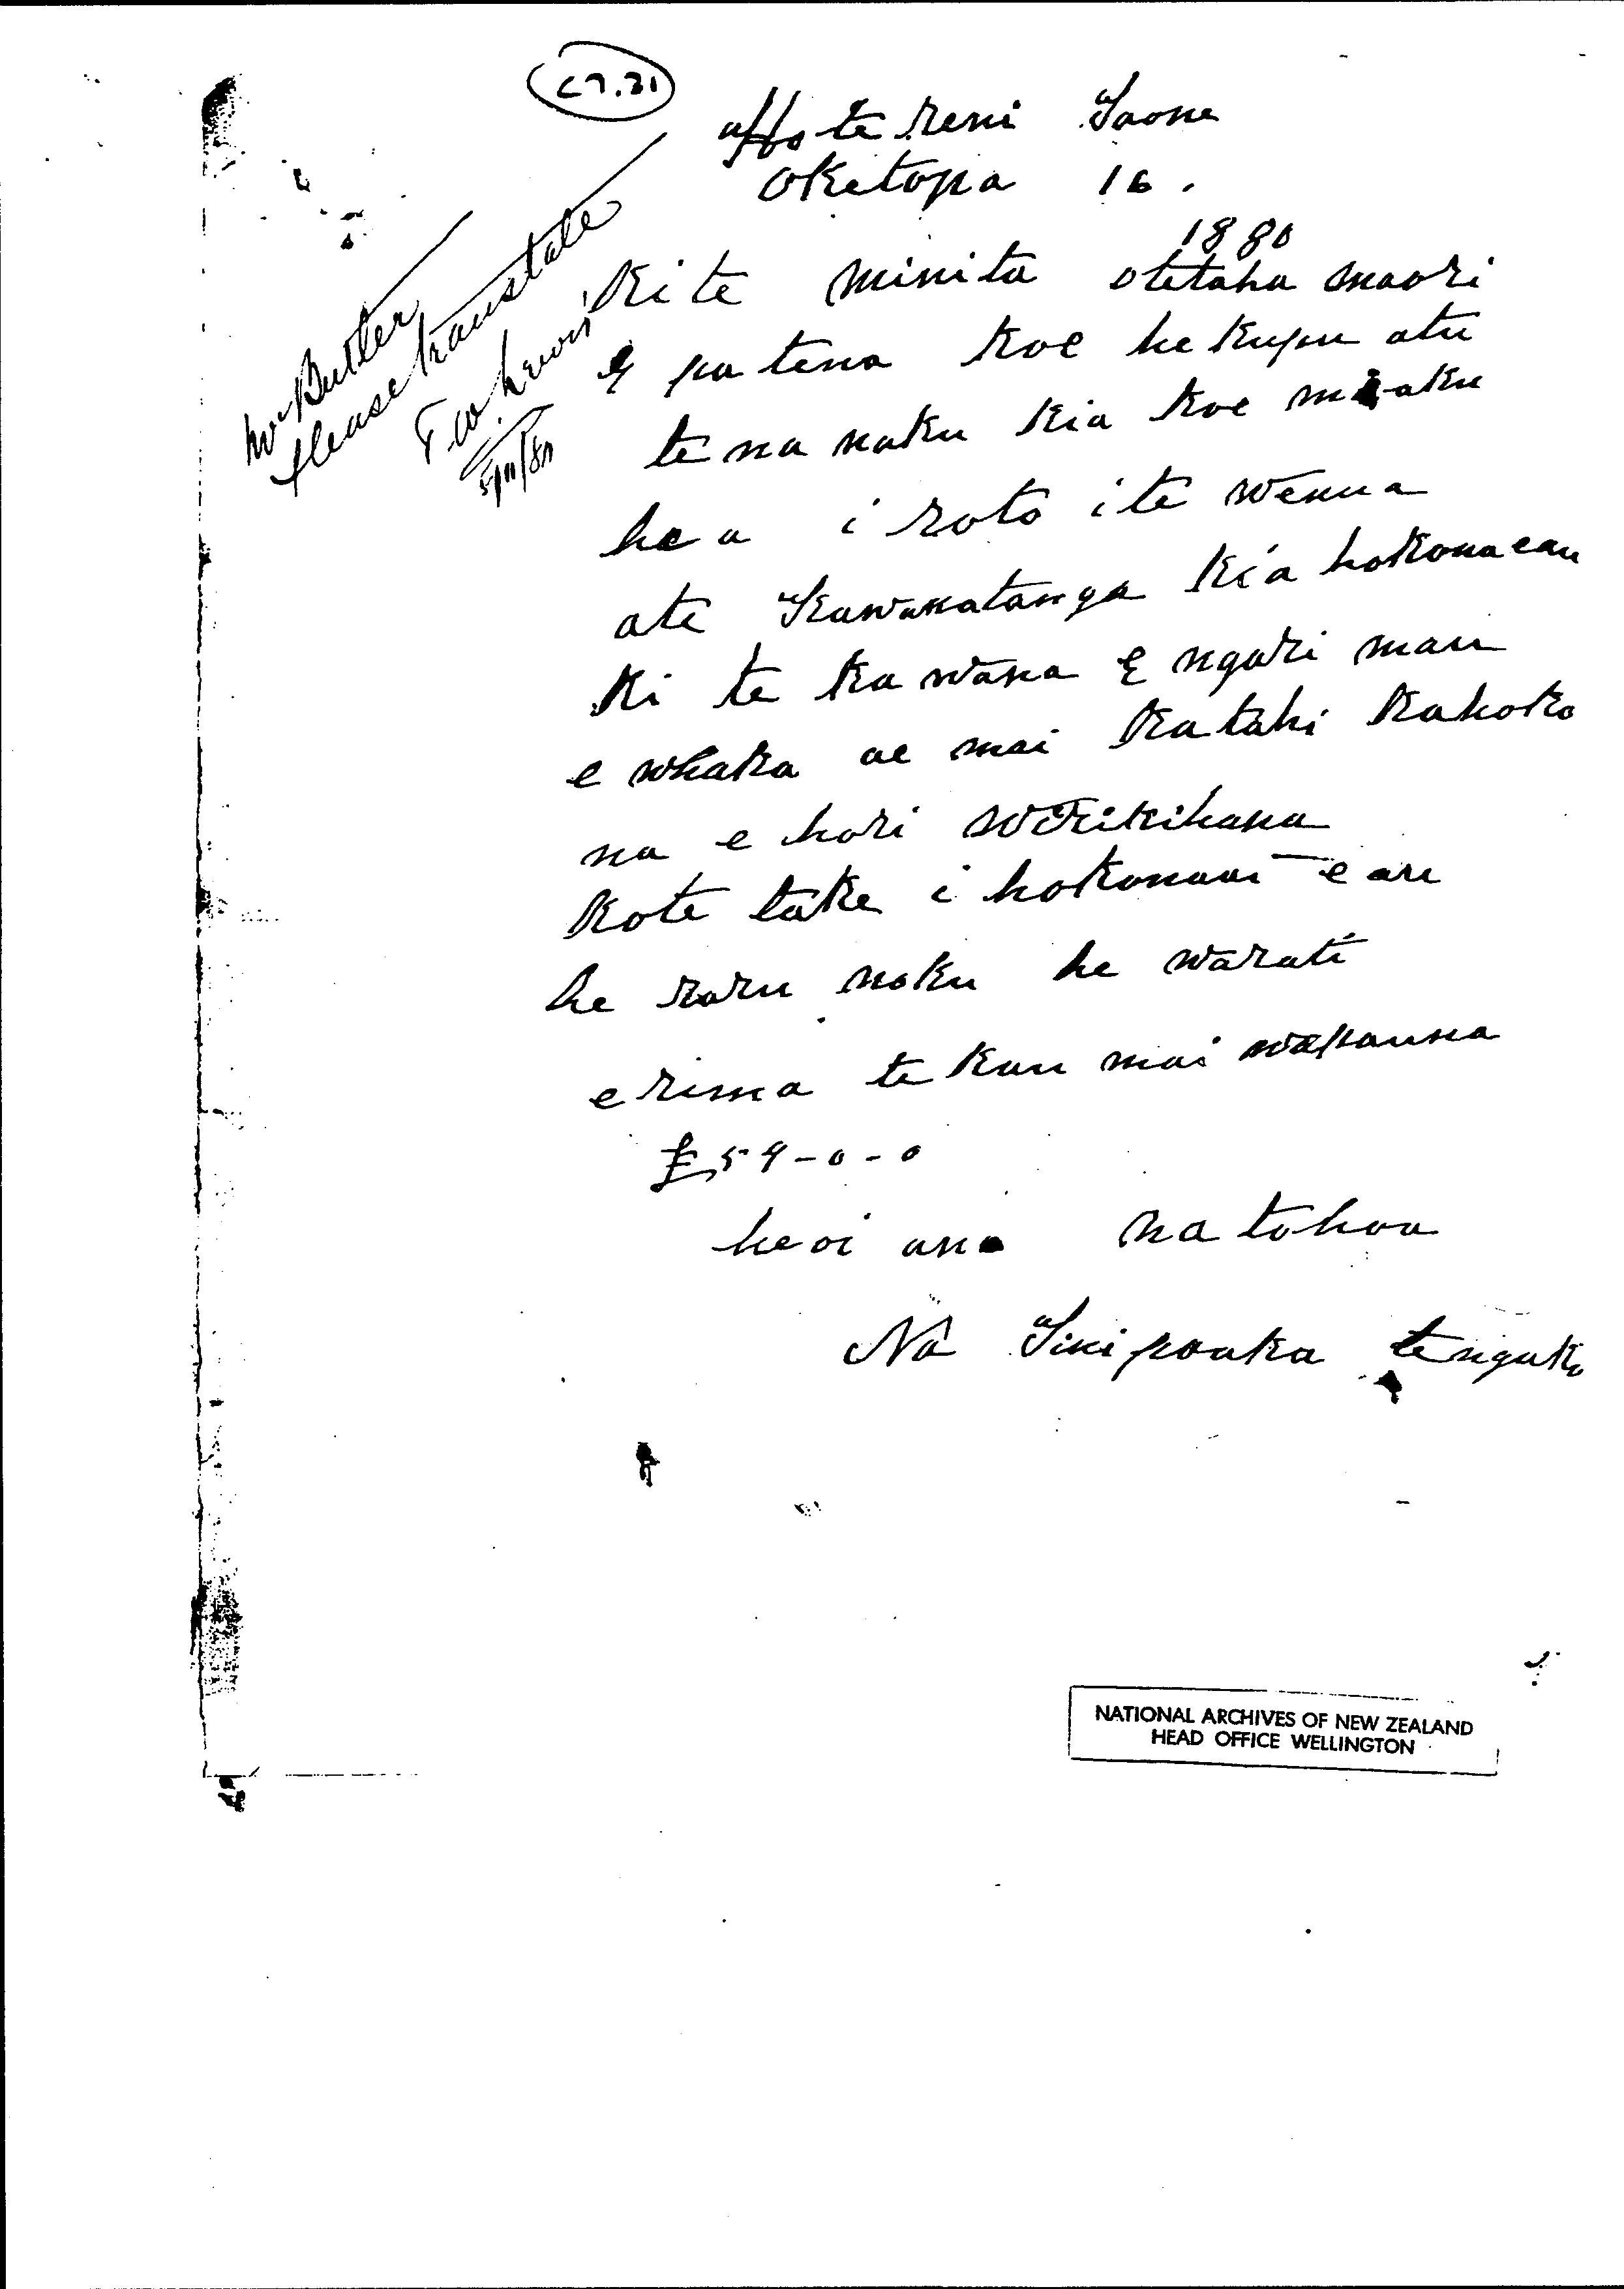 27.31
te reni Taone
Oketopa 16.
1880
Mr Butler
Please translate
T W Lewis
5/11/80
Ki te minita otetaha maori
E pa tena koe he kupu atu
te na naku kia koe mo aku
hea i roto i te wenua
ate Kawanatanga kia hokona eau
ki te kawana E ngari mau
e whaka ae mai Katahi Kahoko
na e hori werikihana
Kote take i hokonaai e au
he raru noku he warati
erima te kau mai wapauna
£54-0-0
heoi ano na tohoa
Na Tini pouka te ngako
NATIONAL ARCHIVES OF NEW ZEALAND
HEAD OFFICE WELLINGTON